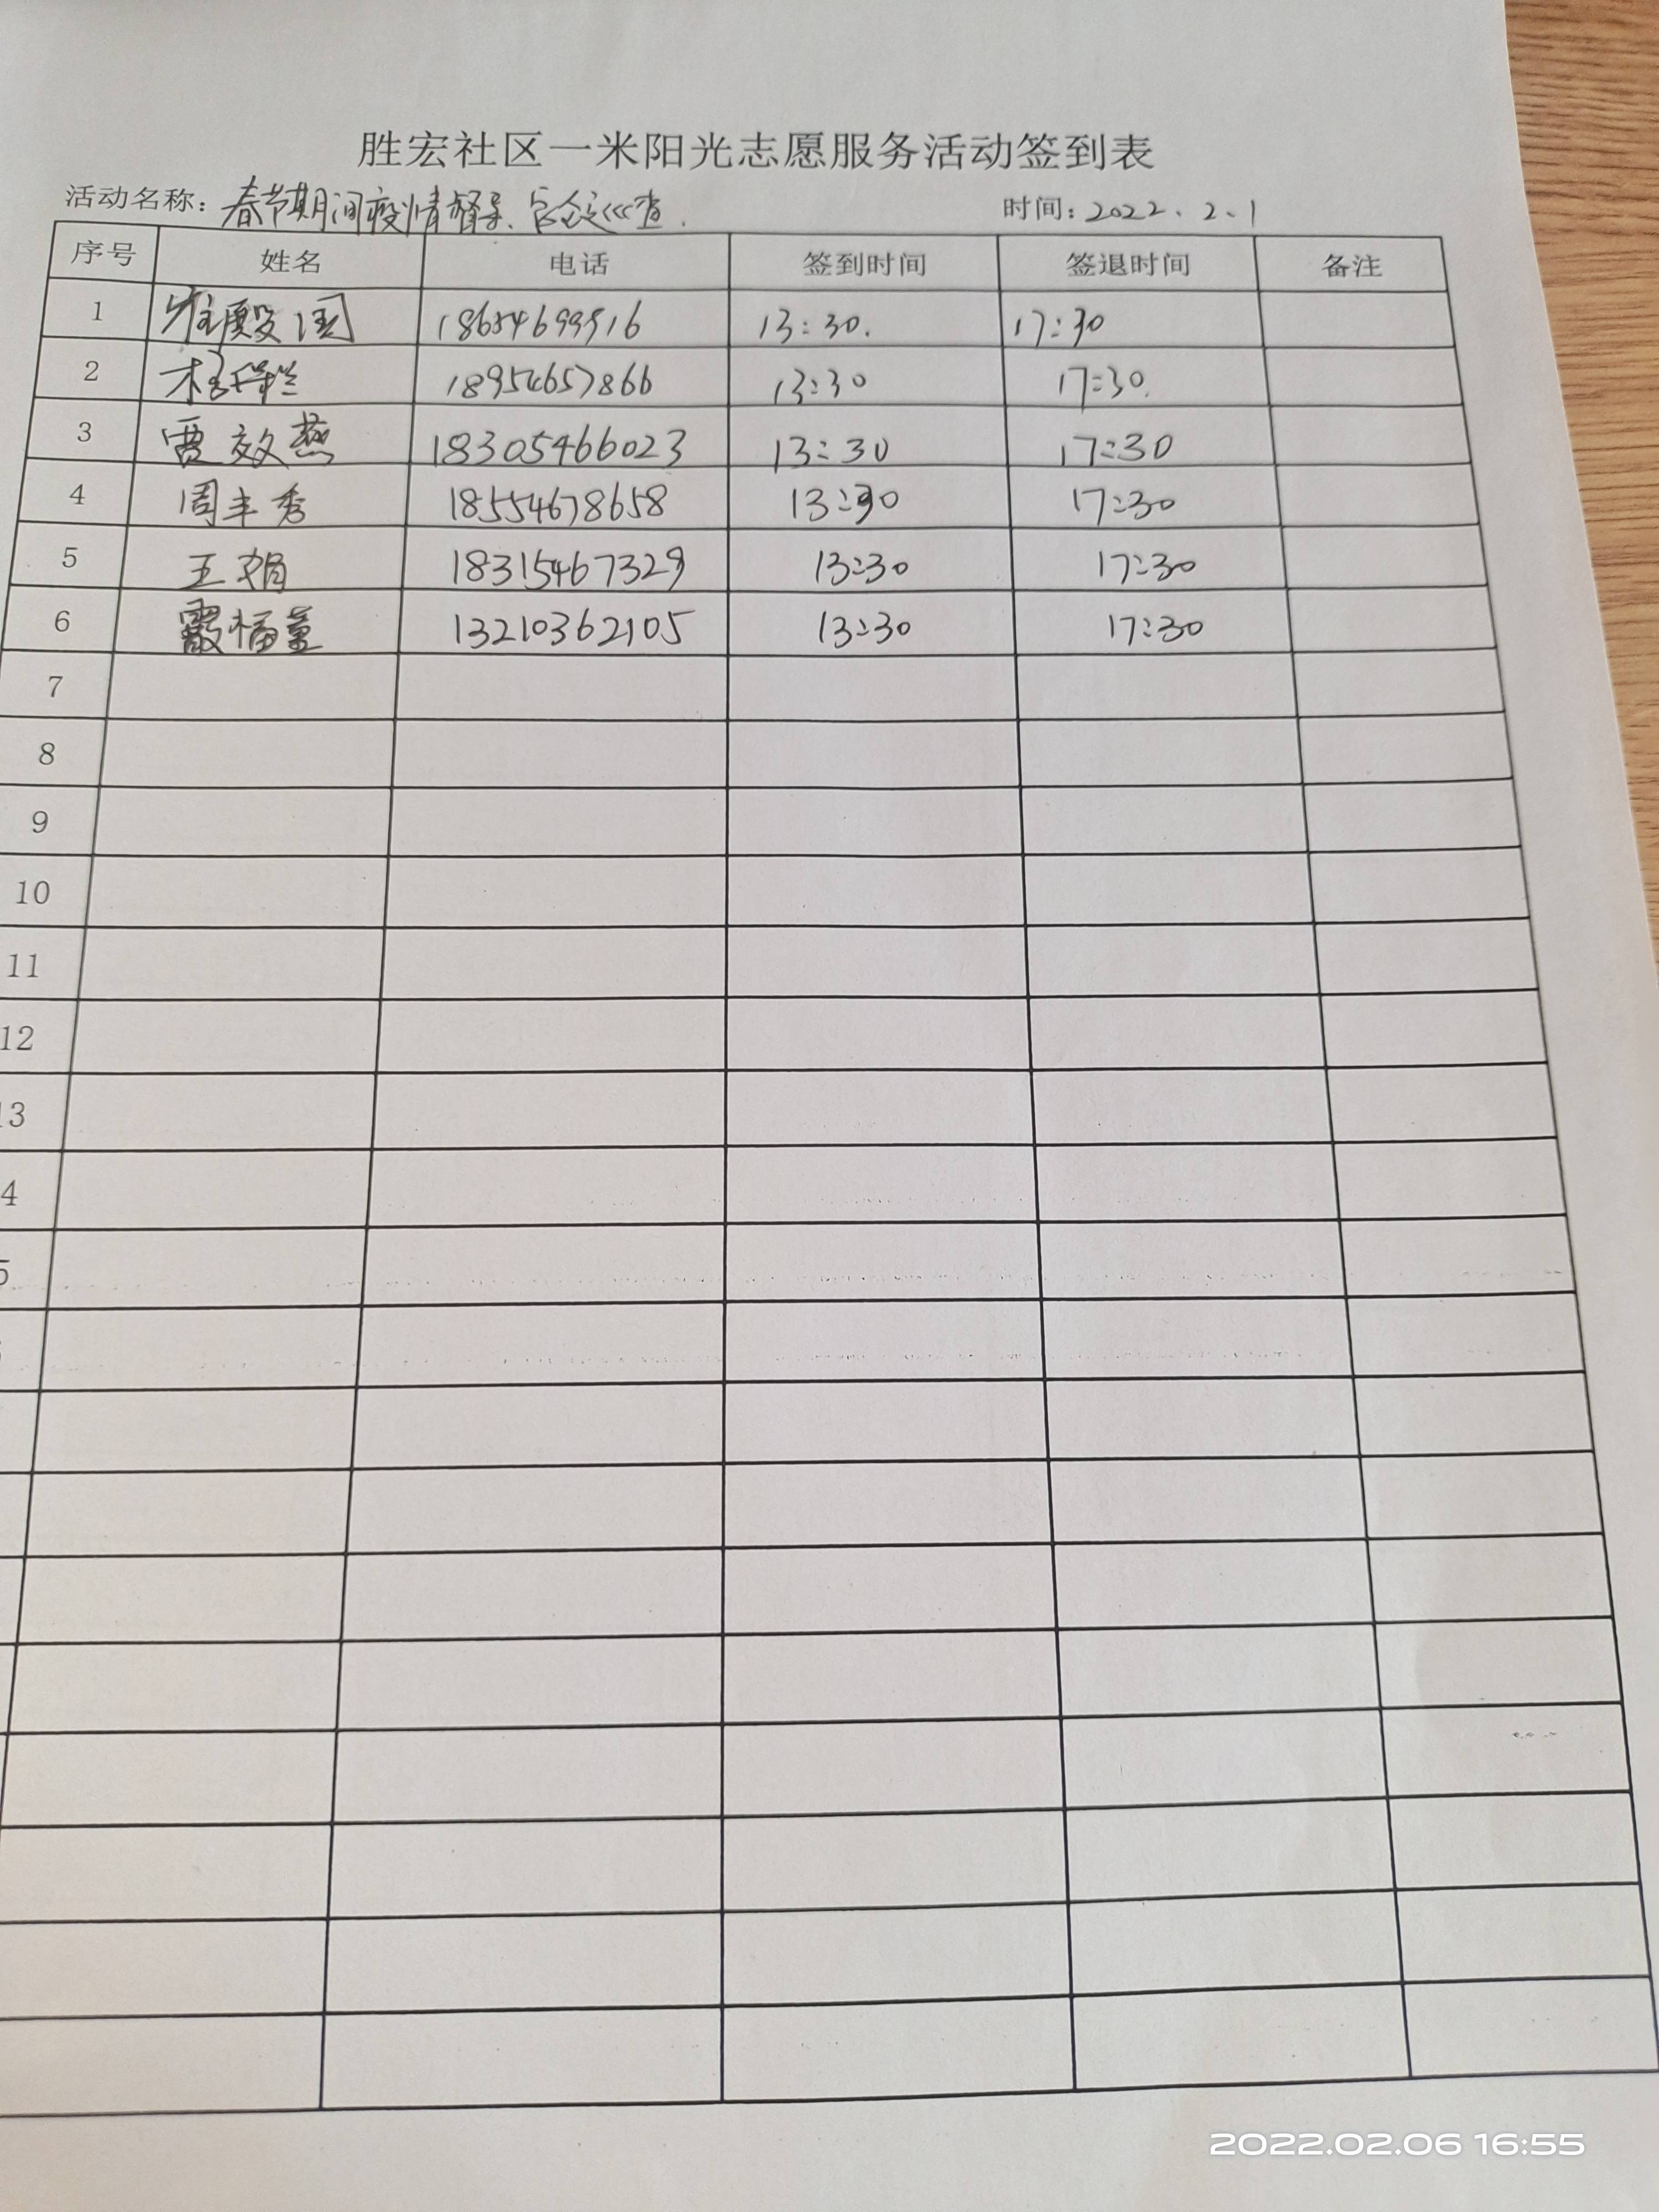 胜宏社区一米阳光志愿服务活动签到表
活动名称：春节期间疫情督导、安全巡查. 时间：2022、2、1
序号 姓名 电话 签到时间 签退时间 备注
1 国 13:30. 17:30
2 18954657866 13:30 17:30.
3 贾效燕 18305466023 13:30 17:30
4 周丰秀 18554678658 13:30 17:30
5 王娟 18315467329 13:30 17:30
6 13210362105 13:30 17:30
7
8
9
10
11
12
13
4
5
2022.02.06 16:55